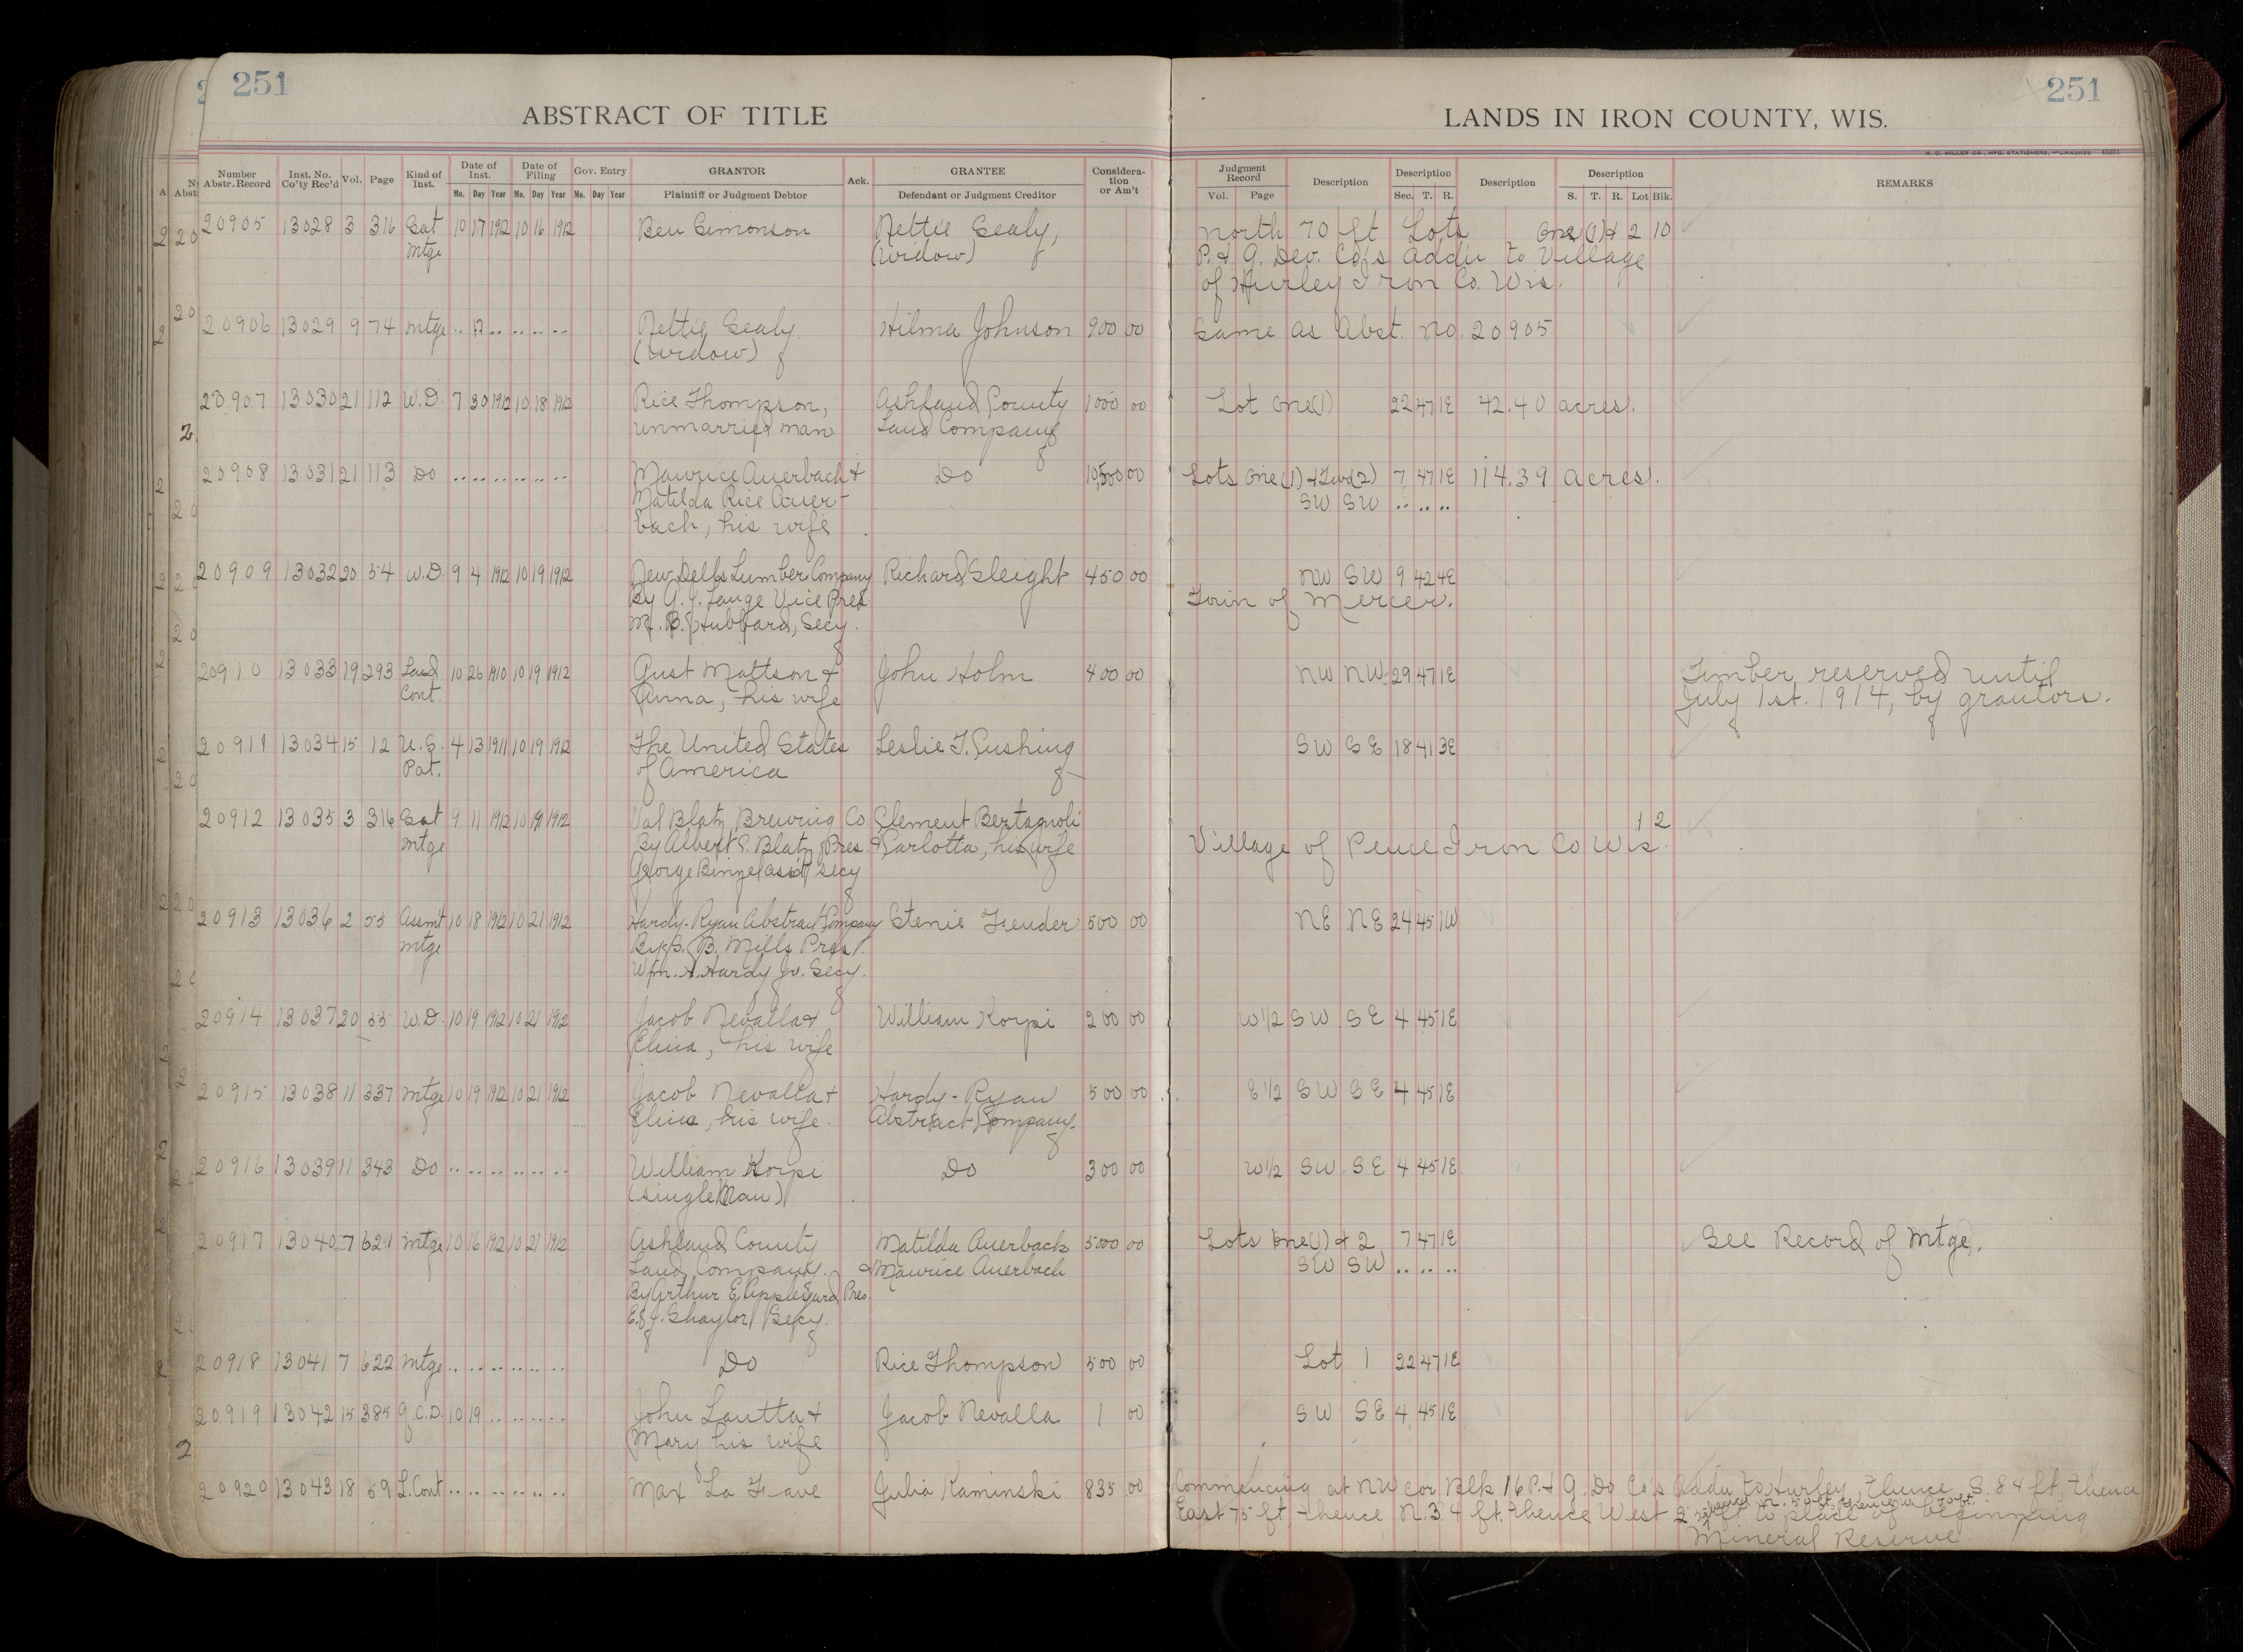 251
251
ABSTRACT OF TITLE
LANDS IN IRON COUNTY, WIS.
H. C. MILLER CO., MFG. STATIONERS, MILWAUKEE
Number Abstr. Record Inst. No. Co'ty Rec'd Vol. Page Kind of Inst. Date of Inst. Date of Filing Gov. Entry GRANTOR Ack. GRANTEE Considera-tion or Am't Judgment Record Description Description Description Description REMARKS
Mo. Day Year Mo. Day Year Mo. Day Year Plaintiff or Judgment Debtor Defendant or Judgment Creditor Vol. Page Sec. T. R. S. T. R. Lot Blk.
20905 13028 3 316 Sat 10 17 1912 10 16 1912 Ben Simonson Nettie Sealy, North 70 ft Lots One (1) & 2 10
Mtge (Widow) P. & G. Dev. Co's Addn to Village
of Hurley Iron Co. Wis.
20906 13029 9 74 Mtge .. 17 .. .. .. .. Nettie Sealy Hilma Johnson 900 00 Same as Abst. No. 20905
(Widow)
20907 13030 21 112 W.D. 7 30 1912 10 18 1912 Rice Thompson, Ashland County 1000 00 Lot One (1) 22 47 1E 42.40 acres.
unmarried man Land Company
20908 13031 21 113 Do .. .. .. .. .. .. Maurice Auerbach & Do 10,500 00 Lots One (1) & Two (2) 7 47 1E 114.39 acres.
Matilda Rice Auer- SW SW .. .. ..
bach, his wife
20909 13032 20 54 W.D. 9 4 1912 10 19 1912 New Dells Lumber Company Richard Sleight 450 00 NW SW 9 42 4E
By G. J. Lange Vice Pres. Town of Mercer.
M. B. Hubbard, Secy.
20910 13033 19 293 Land 10 26 1910 10 19 1912 Gust Mattson & John Holm 400 00 NW NW 29 47 1E Timber reserved until
Cont. Anna, his wife July 1st. 1914, by grantors.
20911 13034 15 12 U.S. 4 13 1911 10 19 1912 The United States Leslie T. Cushing SW SE 18 41 3E
Pat. of America
20912 13035 3 316 Sat 9 11 1912 10 19 1912 Val Blatz Brewing Co Clement Bertagnoli 1 2
Mtge By Albert C. Blatz Pres. & Carlotta, his wife Village of Pence Iron Co Wis.
George Binzel Asst Secy
20913 13036 2 55 Assmt 10 18 1912 10 21 1912 Hardy-Ryan Abstract Company Stenie Fender 500 00 NE NE 24 45 1W
Mtge B. Mills Prest.
Wm. H. Hardy Jr. Secy.
20914 13037 20 55 W.D. 10 19 1912 10 21 1912 Jacob Nevalla & William Korpi 200 00 W 1/2 SW SE 4 45 1E
Elina, his wife
20915 13038 11 337 Mtge 10 19 1912 10 21 1912 Jacob Nevalla & Hardy-Ryan 500 00 E 1/2 SW SE 4 45 1E
Elina, his wife. Abstract Company.
20916 13039 11 343 Do .. .. .. .. .. .. William Korpi Do 300 00 W 1/2 SW SE 4 45 1E
(single Man)
20917 13040 7 621 Mtge 10 16 1912 10 21 1912 Ashland County Matilda Auerback 5000 00 Lots One (1) & 2 7 47 1E See Record of Mtge.
Land Company. & Maurice Auerbach SW SW .. .. ..
By Arthur E. Appleyard Pres.
E. J. Shaylor Secy.
20918 13041 7 622 Mtge .. .. .. .. .. .. Do Rice Thompson 500 00 Lot 1 22 47 1E
20919 13042 15 385 Q.C.D. 10 19 .. .. .. .. John Lautta & Jacob Nevalla 1 00 SW SE 4 45 1E
Mary his wife
20920 13043 18 59 L. Cont .. .. .. .. .. .. Max La Fave Julia Kaminski 835 00 Commencing at NW cor Blk 16 P. & G. Do Co's Addn to Hurley, thence S. 84 ft, thence
East 75 ft, thence N. 34 ft. thence West 25 ft thence N. 50 ft, thence W 50 ft. to place of beginning
Mineral Reserve